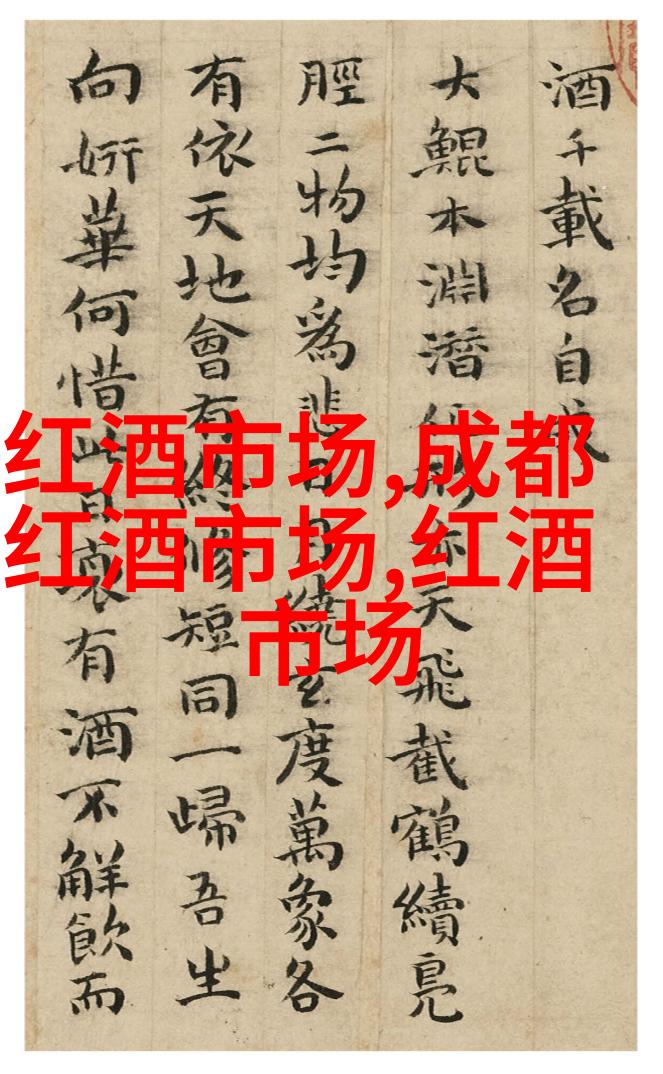 酒千載名自
大鯤本淵潛形亦天飛截鶴續鳧
脛二物均爲悲日月繞玄度萬象各
有依天地會有終修短同一歸吾生
向姸華何惜此日裏有酒不解飲而
红酒市场,成都
红酒市场,红酒
市场